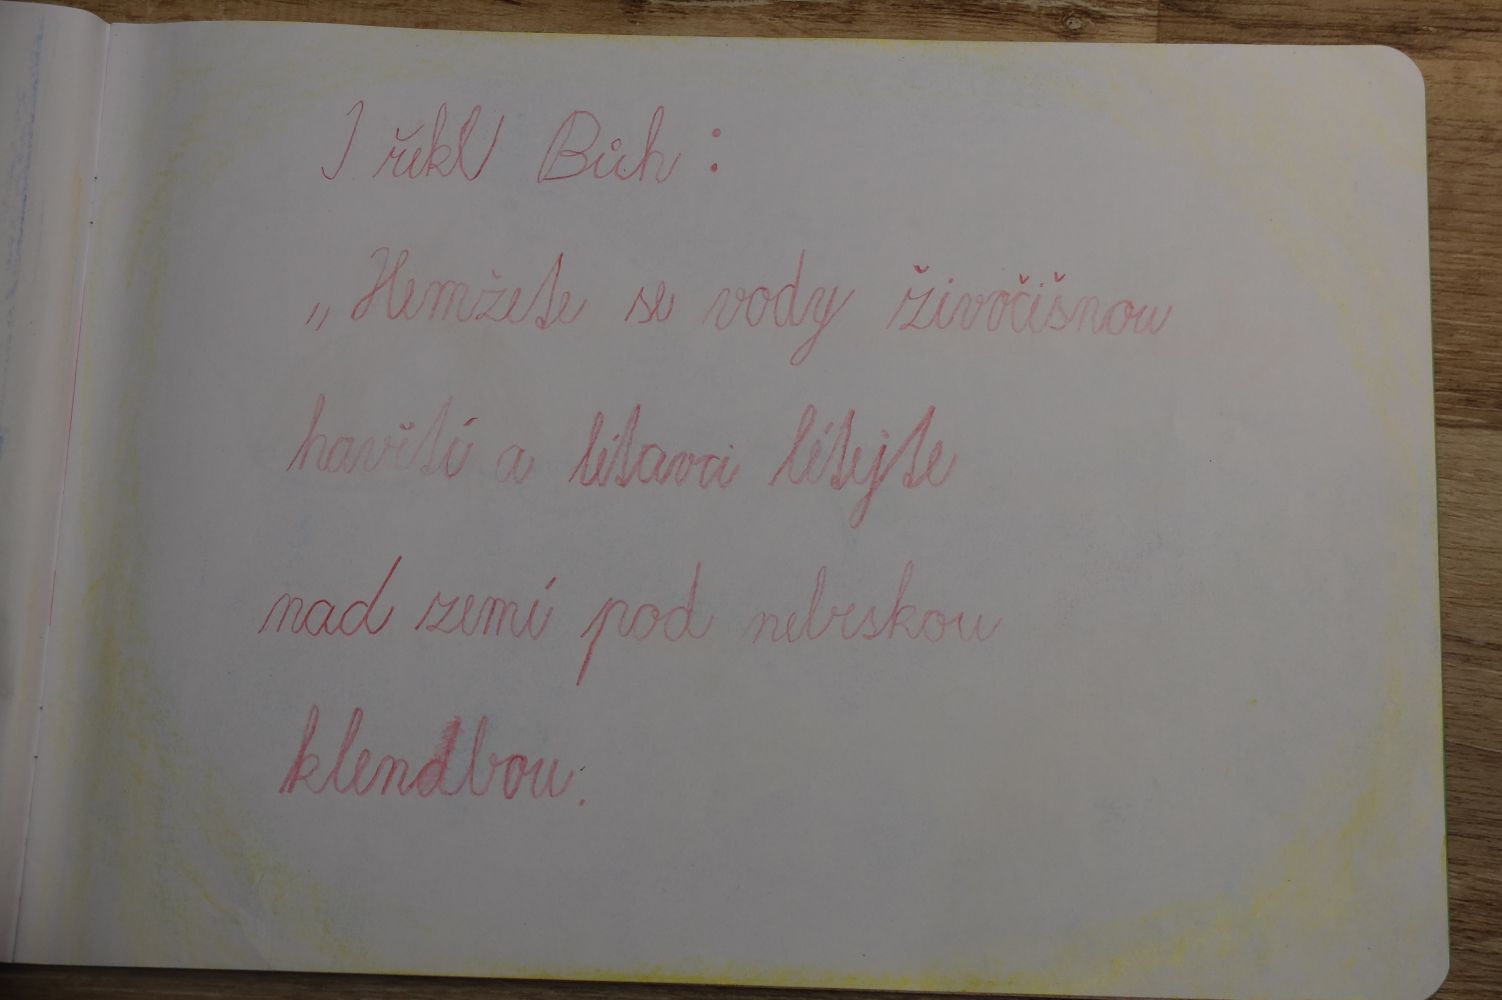 I řekl Bůh:
„Hemžete se vody živočišnou
havětí a létavci létejte
nad zemí pod nebeskou
klendbou.